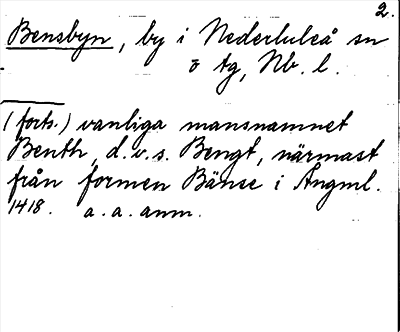 2.
Bensbyn, by i Nederluleå sn
o tg, Nb. l.
(forts.) vanliga mansnamnet
Benth, d.v.s. Bengt, närmast
från formen Bänse i Ångml.
1418. a. a. anm.